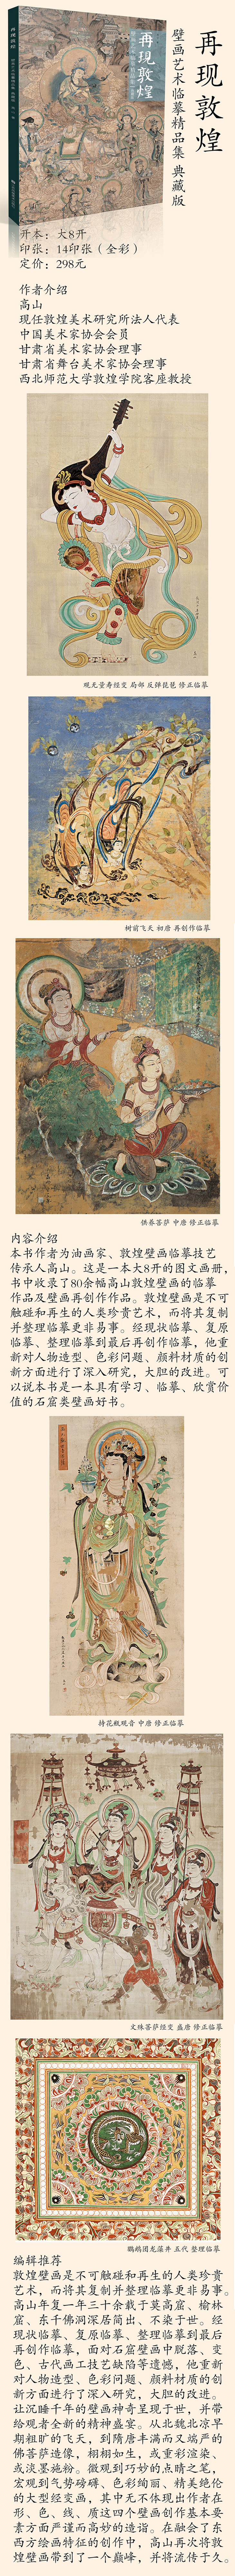 再现敦煌
壁画艺术临摹精品集 典藏版
再现敦煌
开本：大8开
印张：14印张（全彩）
定价：298元
作者介绍
高山
现任敦煌美术研究所法人代表
中国美术家协会会员
甘肃省美术家协会理事
甘肃省舞台美术家协会理事
西北师范大学敦煌学院客座教授
观无量寿经变 局部 反弹琵琶 修正临摹
树前飞天 初唐 再创作临摹
供养菩萨 中唐 修正临摹
内容介绍
本书作者为油画家、敦煌壁画临摹技艺
传承人高山。这是一本大8开的图文画册，
书中收录了80余幅高山敦煌壁画的临摹
作品及壁画再创作作品。敦煌壁画是不可
触碰和再生的人类珍贵艺术，而将其复制
并整理临摹更非易事。经现状临摹、复原
临摹、整理临摹到最后再创作临摹，他重
新对人物造型、色彩问题、颜料材质的创
新方面进行了深入研究，大胆的改进。可
以说本书是一本具有学习、临摹、欣赏价
值的石窟类壁画好书。
持花瓶观音 中唐 修正临摹
文殊菩萨经变 盛唐 修正临摹
鹦鹉团龙藻井 五代 整理临摹
编辑推荐
敦煌壁画是不可触碰和再生的人类珍贵
艺术，而将其复制并整理临摹更非易事。
高山年复一年三十余载于莫高窟、榆林
窟、东千佛洞深居简出、不染于世。经
现状临摹、复原临摹、整理临摹到最后
再创作临摹，面对石窟壁画中脱落、变
色、古代画工技艺缺陷等遗憾，他重新
对人物造型、色彩问题、颜料材质的创
新方面进行了深入研究，大胆的改进。
让沉睡千年的壁画神奇呈现于世，并带
给观者全新的精神盛宴。从北魏北凉早
期粗犷的飞天，到隋唐丰满而又端严的
佛菩萨造像，栩栩如生，或重彩渲染、
或淡墨施粉。微观到巧妙的点睛之笔，
宏观到气势磅礴、色彩绚丽、精美绝伦
的大型经变画，其中无不体现出作者在
形、色、线、质这四个壁画创作基本要
素方面严谨而高妙的造诣。在融会了东
西方绘画特征的创作中，高山再次将敦
煌壁画带到了一个巅峰，并将流传于久。